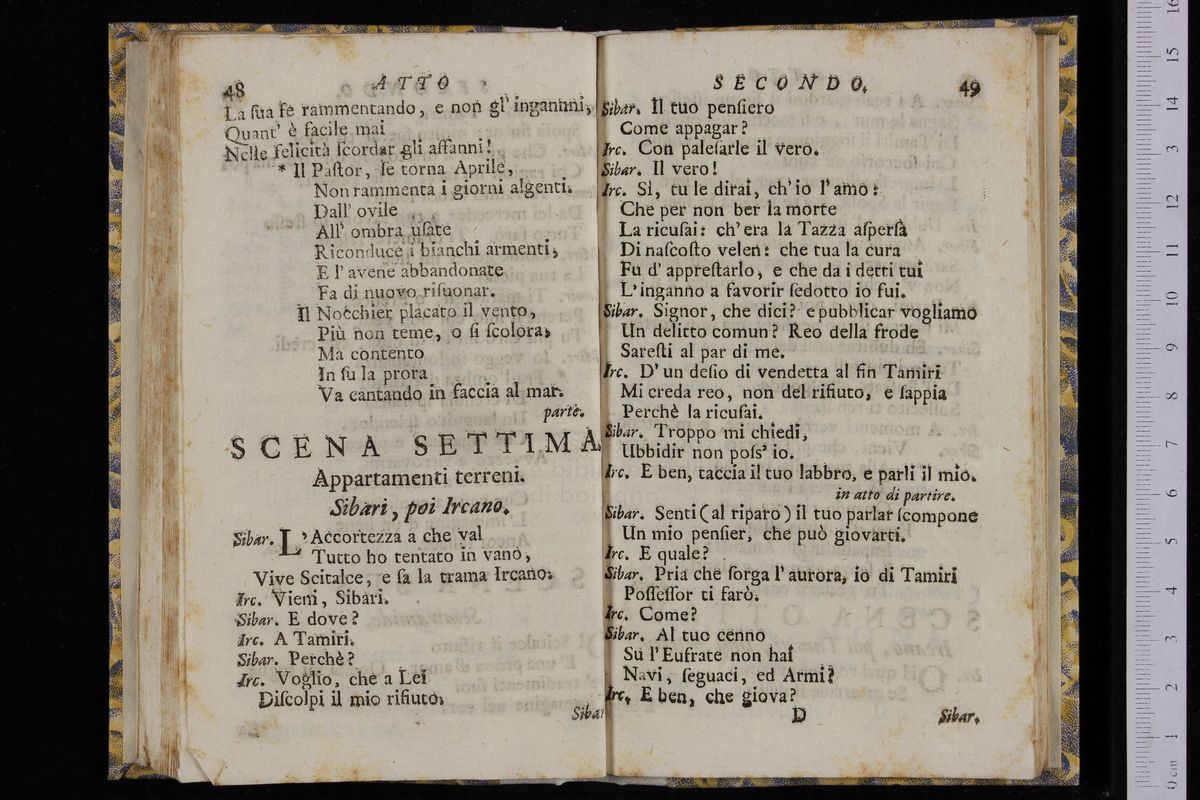 48 ATTO
La ſua fè rammentando, e non gl' inganni,
Quant' è facile mai
Nelle felicità ſcordar gli affanni!
* Il Paſtor, ſe torna Aprile,
Non rammenta i giorni algenti.
Dall' ovile
All' ombra uſate
Riconduce i bianchi armenti,
E l' avene abbandonate
Fa di nuovo riſuonar.
Il Nocchier placato il vento,
Più non teme, o ſi ſcolora,
Ma contento
In ſu la prora
Va cantando in faccia al mar.
parte.
SCENA SETTIMA.
Appartamenti terreni.
Sibari, poi Ircano.
Sibar. L'Accortezza a che val
Tutto ho tentato in vano,
Vive Scitalce, e ſa la trama Ircano.
Irc. Vieni, Sibari.
Sibar. E dove?
Irc. A Tamiri.
Sibar. Perchè?
Irc. Voglio, che a Lei
Diſcolpi il mio rifiuto.
Sibar
SECONDO. 49
Sibar. Il tuo penſiero
Come appagar?
Irc. Con paleſarle il vero.
Sibar. Il vero!
Irc. Sì, tu le dirai, ch' io l' amo:
Che per non ber la morte
La ricuſai: ch' era la Tazza aſperſa
Di naſcoſto velen: che tua la cura
Fu d' appreſtarlo, e che da i detti tui
L' inganno a favorir ſedotto io fui.
Sibar. Signor, che dici? e pubblicar vogliamo
Un delitto comun? Reo della frode
Sareſti al par di me.
Irc. D' un deſio di vendetta al fin Tamiri
Mi creda reo, non del rifiuto, e ſappia
Perchè la ricuſai.
Sibar. Troppo mi chiedi,
Ubbidir non poſs' io.
Irc. E ben, taccia il tuo labbro, e parli il mio.
in atto di partire.
Sibar. Senti (al riparo) il tuo parlar ſcompone
Un mio penſier, che può giovarti.
Irc. E quale?
Sibar. Pria che ſorga l' aurora, io di Tamiri
Poſſeſſor ti farò.
Irc. Come?
Sibar. Al tuo cenno
Su l' Eufrate non hai
Navi, ſeguaci, ed Armi?
Irc. E ben, che giova?
D Sibar.